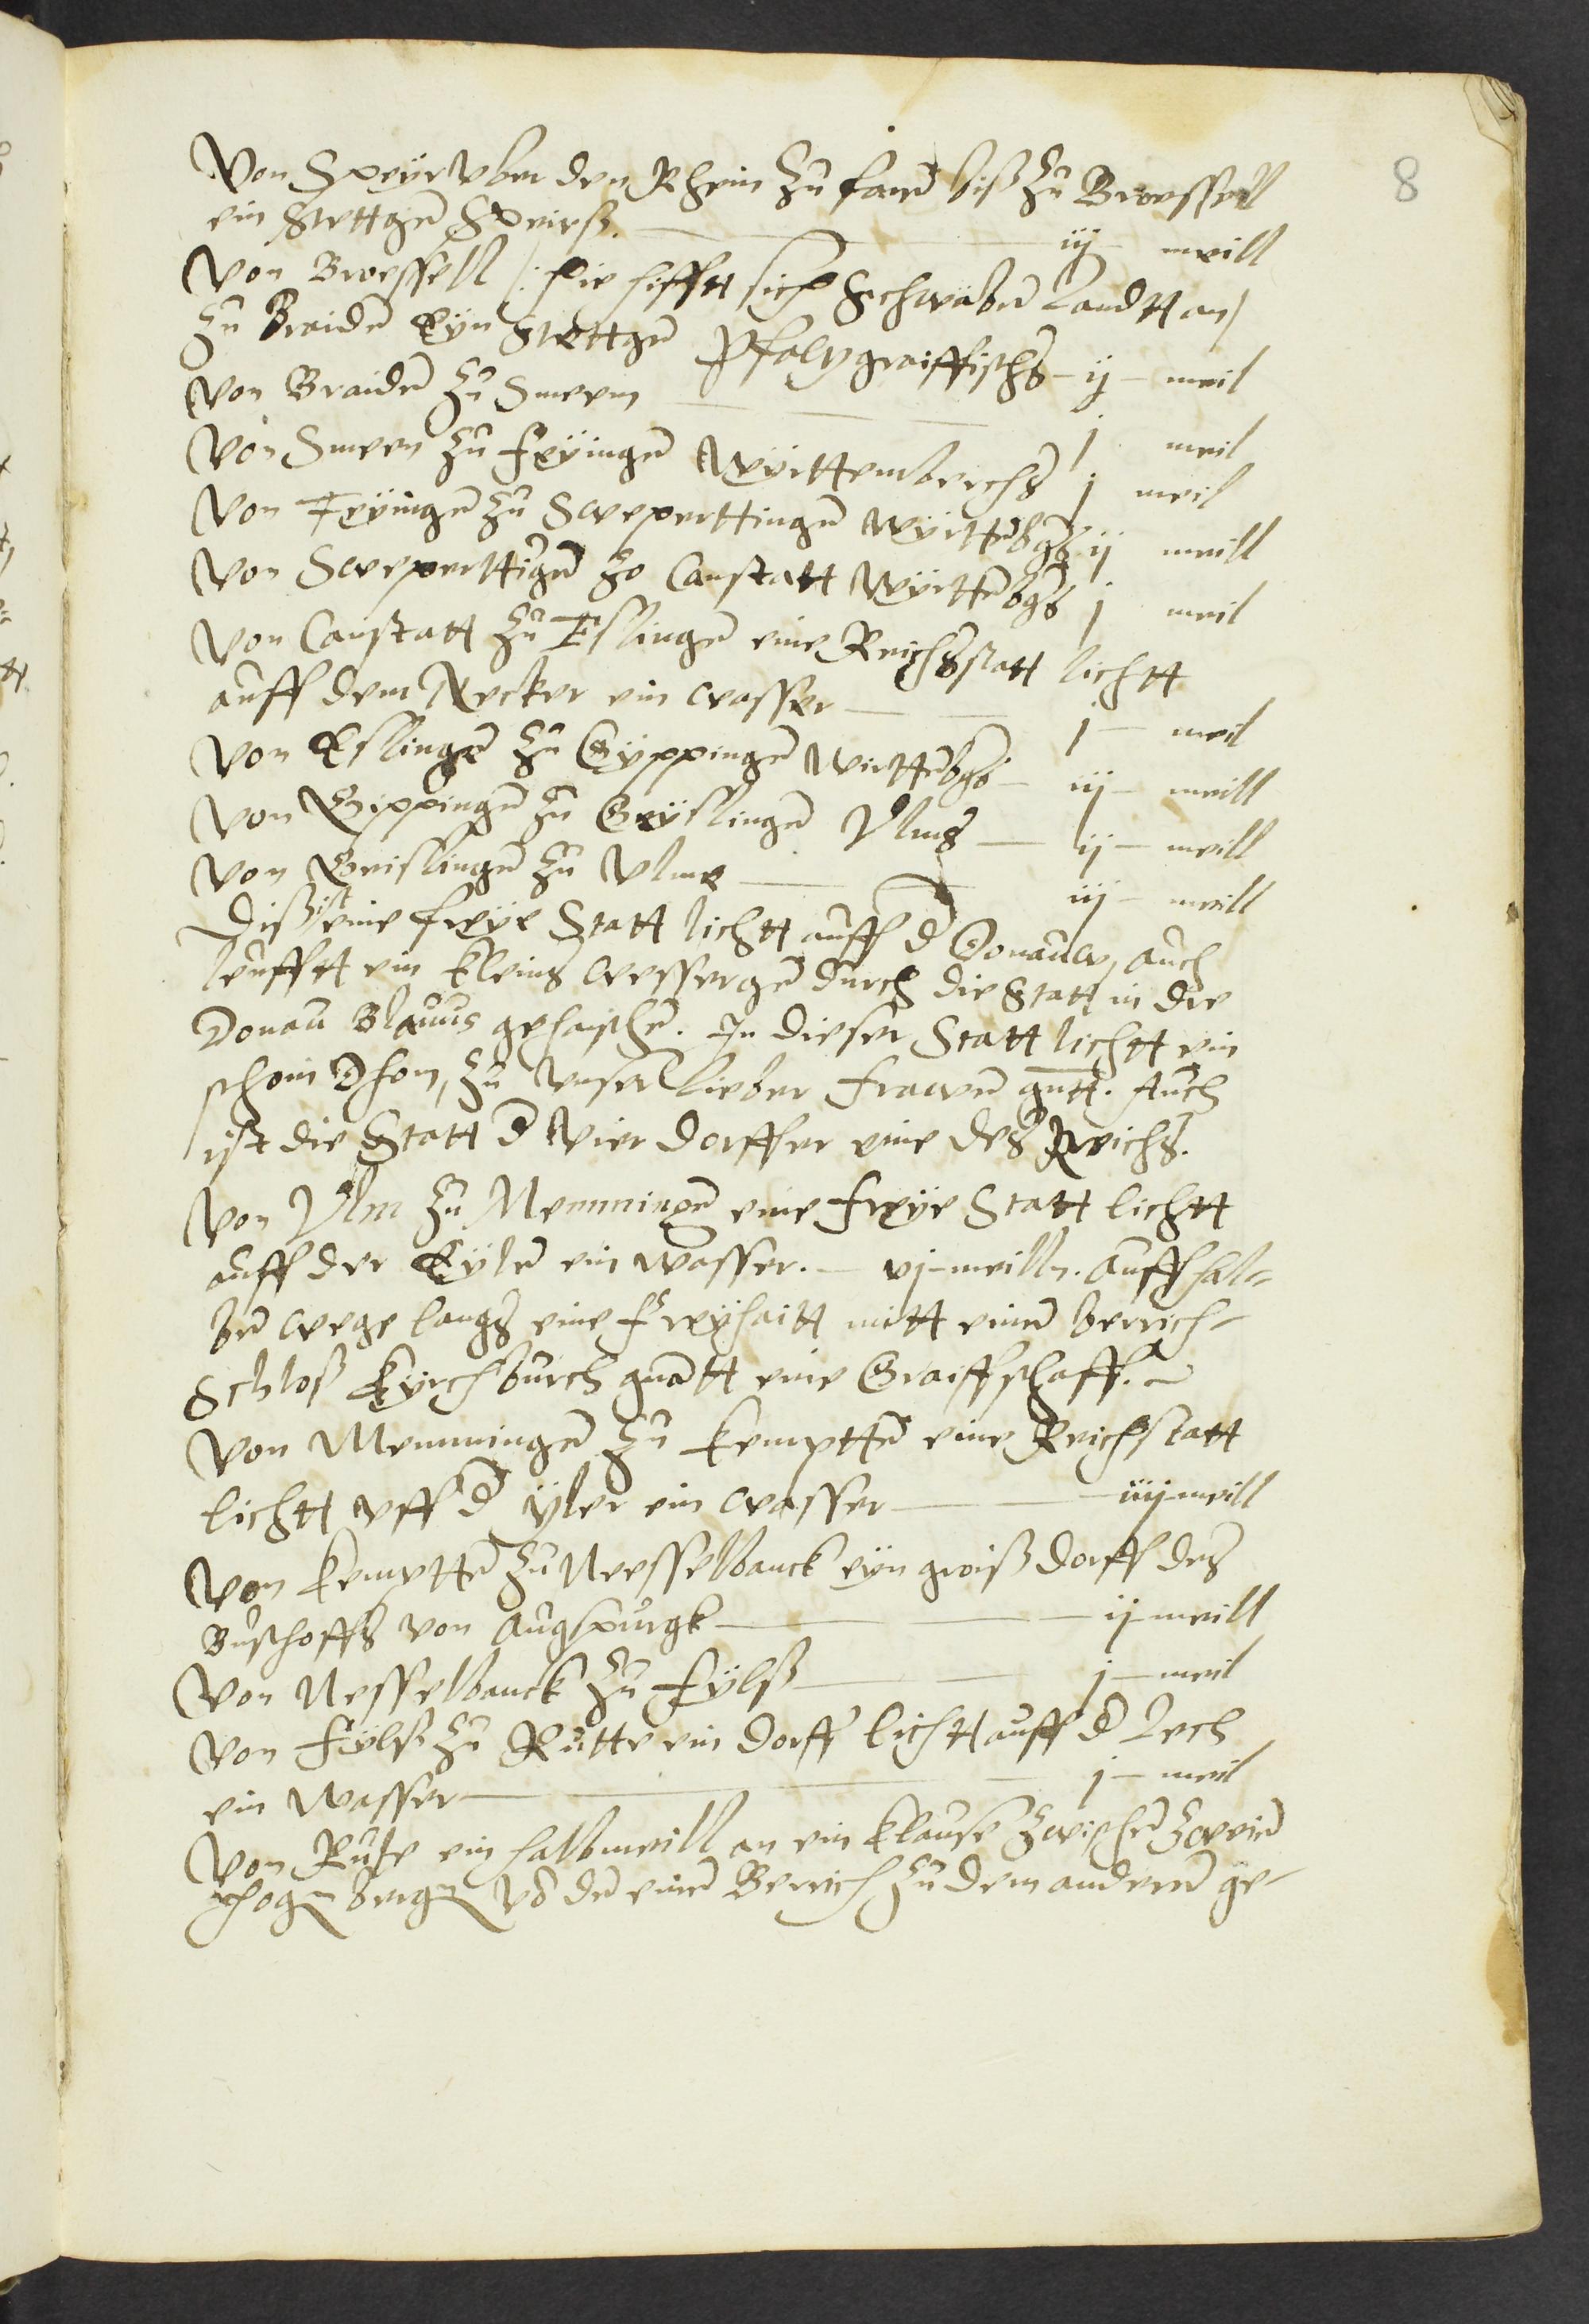 8
Von Speyr vber den Rhein zu faren biß zu Broessell
ein stettgen Speirß. iij meill
Von Broessell /: hie hifftt sich Schwaben landtt an /
zu Braiden eyn stettgen Pfaltzgraiffischs ij meil
Von Braiden zu Smeem j meil
Von Smeen zu Feyingen Wyrttemberchs j meil
Von Feyingen zu Sweperttingen Wyrttenbgs ij meill
Von Sweperttigen zo Canstatt Wyrttenbgs j meil
Von Canstatt zu Eslingen eine Reichsstatt lichtt
auff dem Necker ein wasser j meil
Von Eslingen zu Gyppingen Wirttenbgs iij meill
Von Gippingen zu Geyslingen Vlms ij meill
Von Geislingen zu Vlme iij meill
Diß ist eine freye Statt lichtt auff d Donauw, auch
leufftt ein kleins wessergen durch die Statt in die
Donau Blauus gehaischen. In dieser Statt lichtt ein
schoin Dhom, zu vnser lieber frawen gntt. Auch
ist die Statt d vier dorffer eine des Reichs.
Von Vlm zu Memmingen eine freye Statt lichtt
auff der Eylen ein wasser. vj meilln. Auff hal=
ben wege langs eine freyhaitt mitt einen berrich=
Schloß Kyrchburch gnantt eine Graiffschafft.
Von Memmingen zu Kemptten eine Reichstatt
lichtt vff d yler ein wasser iiij meill
Von Kemptten zu Nesselbanck eyn groiß dorff des
Buschoffs von Augspurgk ij meill
Von Nesselbanck zu Fylß j meil
Von Fylß zu Rutte ein dorff lichtt auff d Lech
ein Wasser j meil
Von Rute ein halbmeill an ein klause zwischen zweien
hogen bergen vo den einen Berrich zu dem anderen ge=